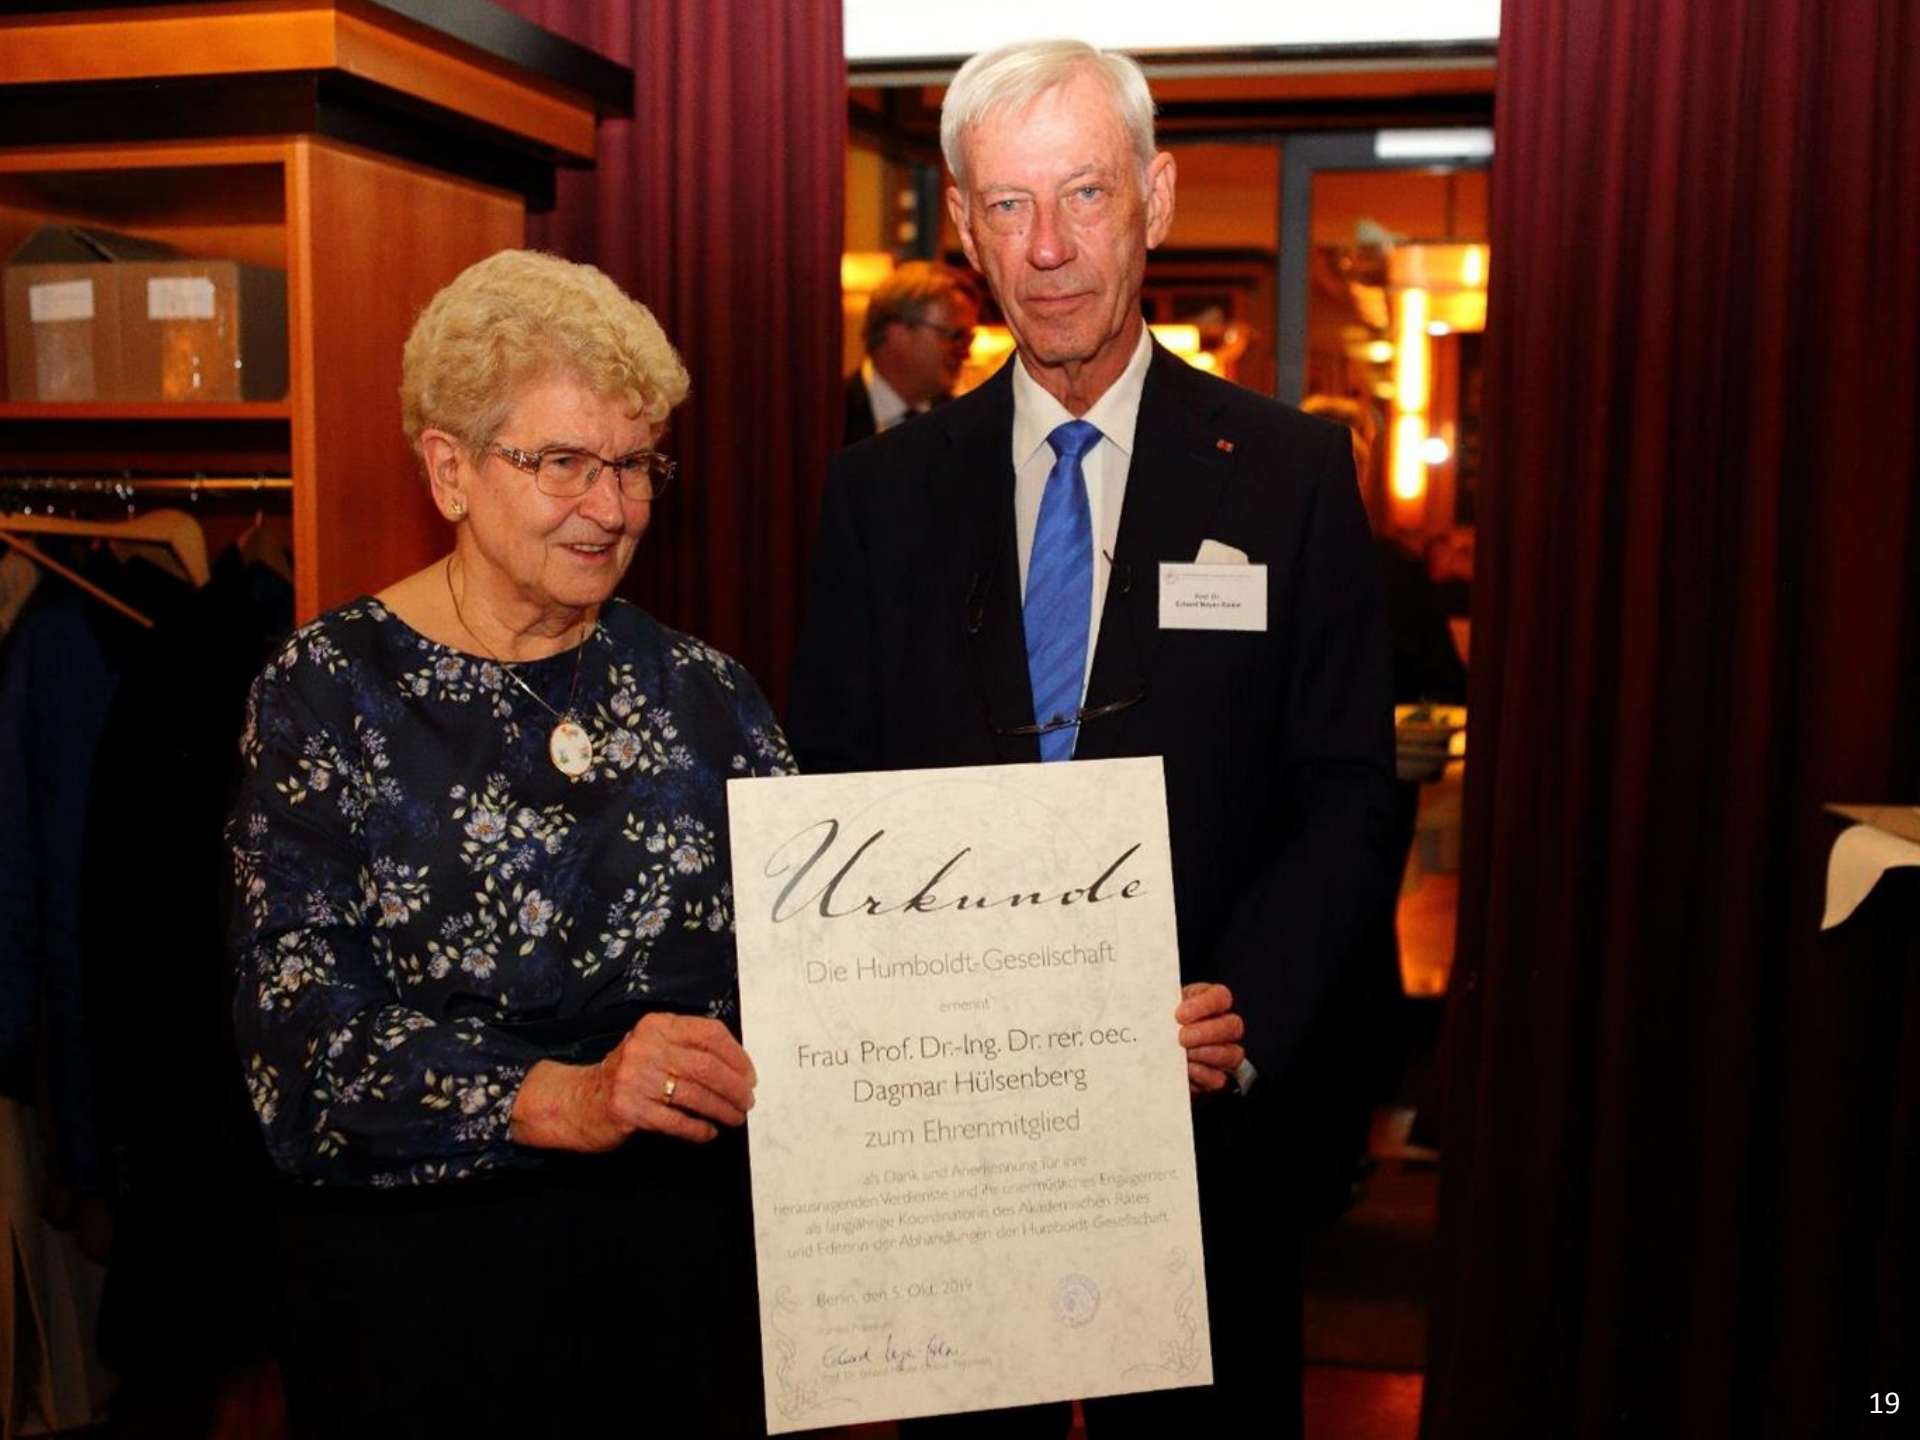 Prof. Dr.
Urkunde
Die Humboldt-Gesellschaft
ernennt
Frau Prof. Dr.-Ing. Dr. rer. oec.
Dagmar Hülsenberg
zum Ehrenmitglied
als Dank und Anerkennung für ihre
herausragenden Verdienste und ihr unermüdliches Engagement
als langjährige Koordinatorin des Akademischen Rates
und Editorin der Abhandlungen der Humboldt-Gesellschaft
Berlin, den 5. Okt. 2019
19